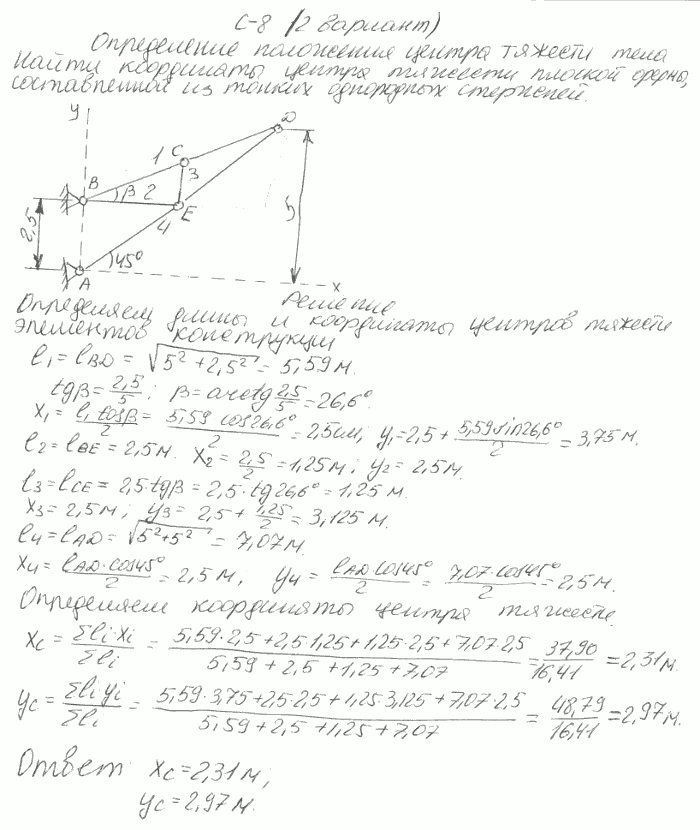 С-8 (2 вариант)
Определение положения центра тяжести тела
Найти координаты центра тяжести плоской фермы,
составленной из тонких однородных стержней.
y
D
1 C
B
3
β 2
E
4
2,5
5
45°
A
x
Решение
Определяем длины и координаты центров тяжести
элементов конструкции
l₁ = l_BD = √(5² + 2,5²) = 5,59 м.
tgβ = 2,5/5; β = arctg 2,5/5 = 26,6°.
x₁ = l₁ cosβ/2 = 5,59 cos26,6°/2 = 2,5 м; y₁ = 2,5 + 5,59 sin26,6°/2 = 3,75 м.
l₂ = l_BE = 2,5 м. x₂ = 2,5/2 = 1,25 м; y₂ = 2,5 м.
l₃ = l_CE = 2,5·tgβ = 2,5·tg26,6° = 1,25 м.
x₃ = 2,5 м; y₃ = 2,5 + 1,25/2 = 3,125 м.
l₄ = l_AD = √(5²+5²) = 7,07 м.
x₄ = l_AD·cos45°/2 = 2,5 м; y₄ = l_AD cos45°/2 = 7,07·cos45°/2 = 2,5 м.
Определяем координаты центра тяжести.
x_C = Σl_i x_i/Σl_i = (5,59·2,5+2,5·1,25+1,25·2,5+7,07·2,5)/(5,59+2,5+1,25+7,07) = 37,90/16,41 = 2,31 м.
y_C = Σl_i y_i/Σl_i = (5,59·3,75+2,5·2,5+1,25·3,125+7,07·2,5)/(5,59+2,5+1,25+7,07) = 48,79/16,41 = 2,97 м.
Ответ: x_C = 2,31 м;
y_C = 2,97 м.